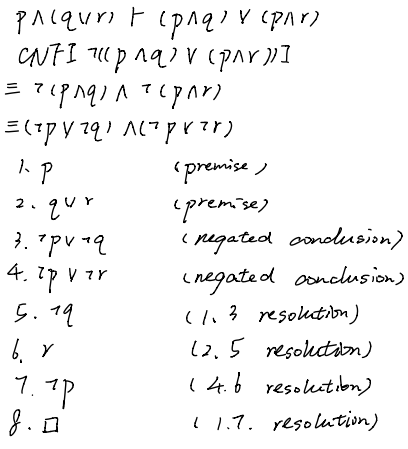 p∧(q∪r) ⊢ (p∧q) ∨ (p∧r)
CNF[ ¬((p∧q) ∨ (p∧r))]
≡ ¬(p∧q) ∧ ¬(p∧r)
≡(¬p∨¬q) ∧(¬p∨¬r)
1. p (premise)
2. q∪r (premise)
3. ¬p∨¬q (negated conclusion)
4. ¬p∨¬r (negated conclusion)
5. ¬q (1. 3 resolution)
6. r (2. 5 resolution)
7. ¬p (4. 6 resolution)
8. □ (1. 7. resolution)